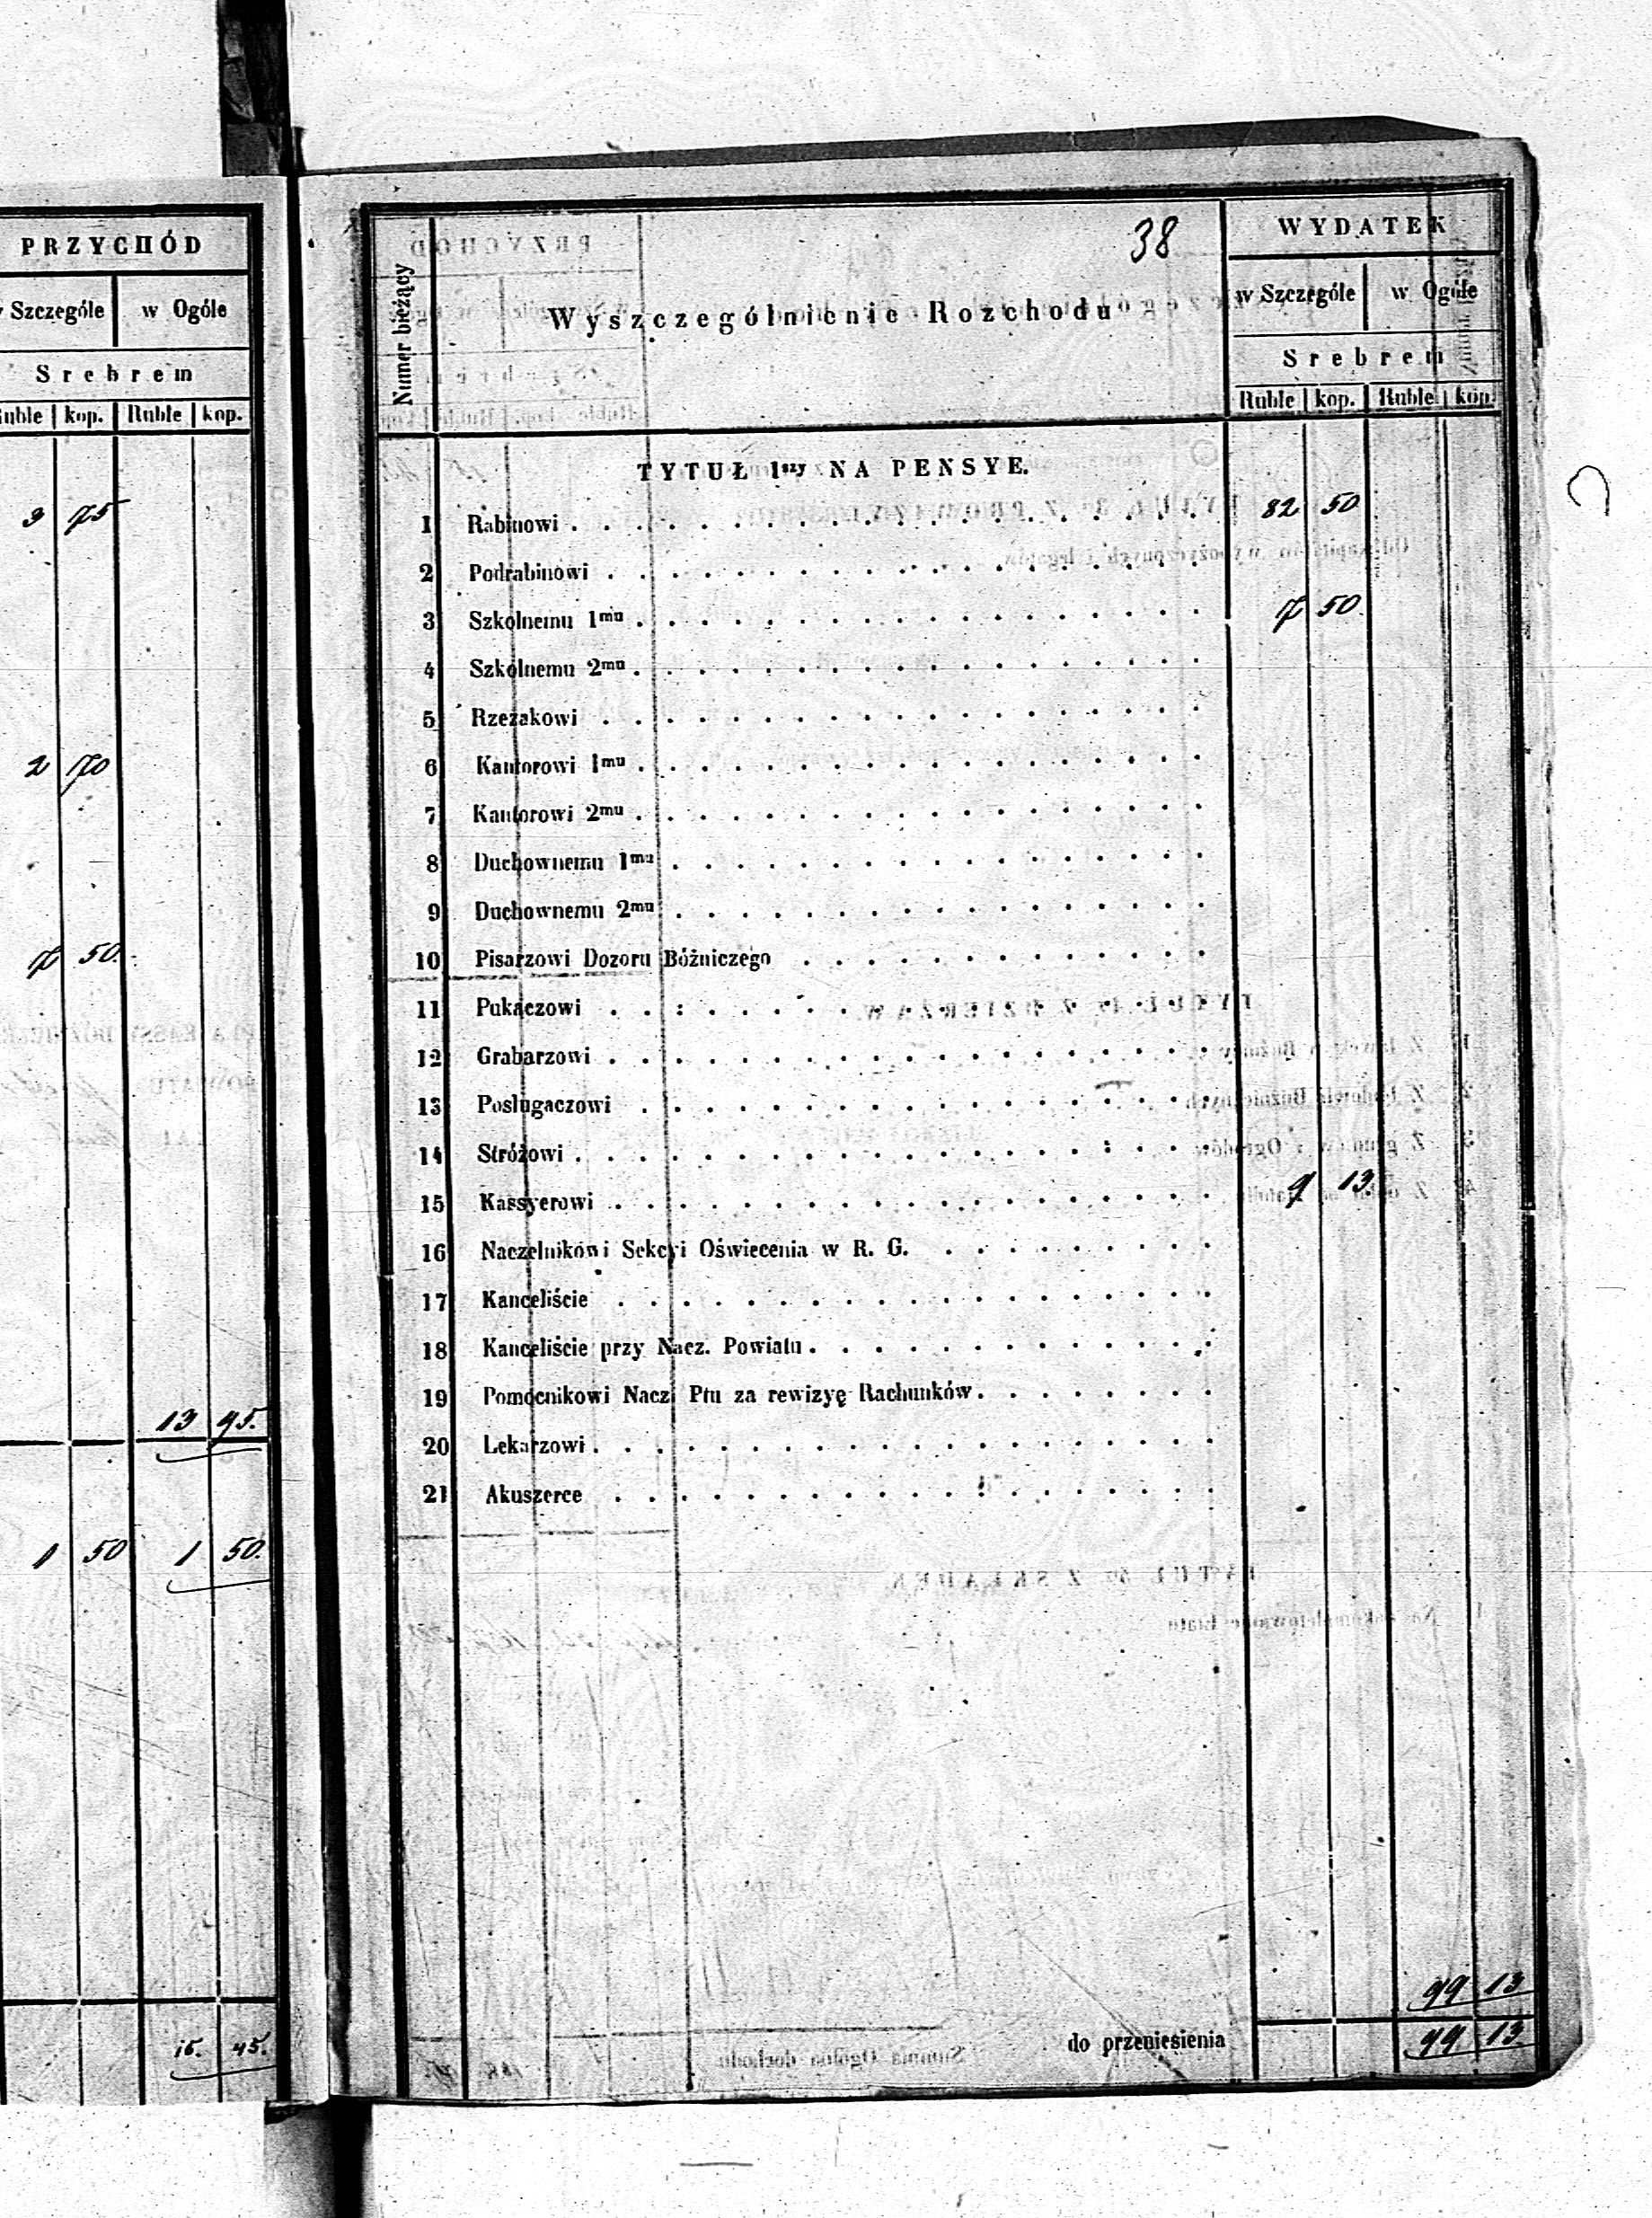 PRZYCHÓD
Szczególe w Ogóle
Srebrem
kop. Ruble kop.
3 75
2 70
7 50.
13 95.
1 50 1 50.
15. 45.
38
Numer bieżący
Wyszczególnienie Rozchodu
WYDATEK
w Szczególe w Ogóle
Srebrem
Ruble kop. Ruble kop.
TYTUŁ 1szy NA PENSYE.
1 Rabinowi 82 50
2 Podrabinowi
3 Szkolnemu 1mu 7 50.
4 Szkolnemu 2mu
5 Rzezakowi
6 Kantorowi 1mu
7 Kantorowi 2mu
8 Duchownemu 1mu
9 Duchownemu 2mu
10 Pisarzowi Dozoru Bóżniczego
11 Pukaczowi
12 Grabarzowi
13 Posługaczowi
14 Stróżowi
15 Kassyerowi 9 13.
16 Naczelnikowi Sekcyi Oświecenia w R. G.
17 Kanceliście
18 Kanceliście przy Nacz. Powiatu
19 Pomocnikowi Nacz. Ptu za rewizyę Rachunków
20 Lekarzowi
21 Akuszerce
99 13
do przeniesienia 99 13